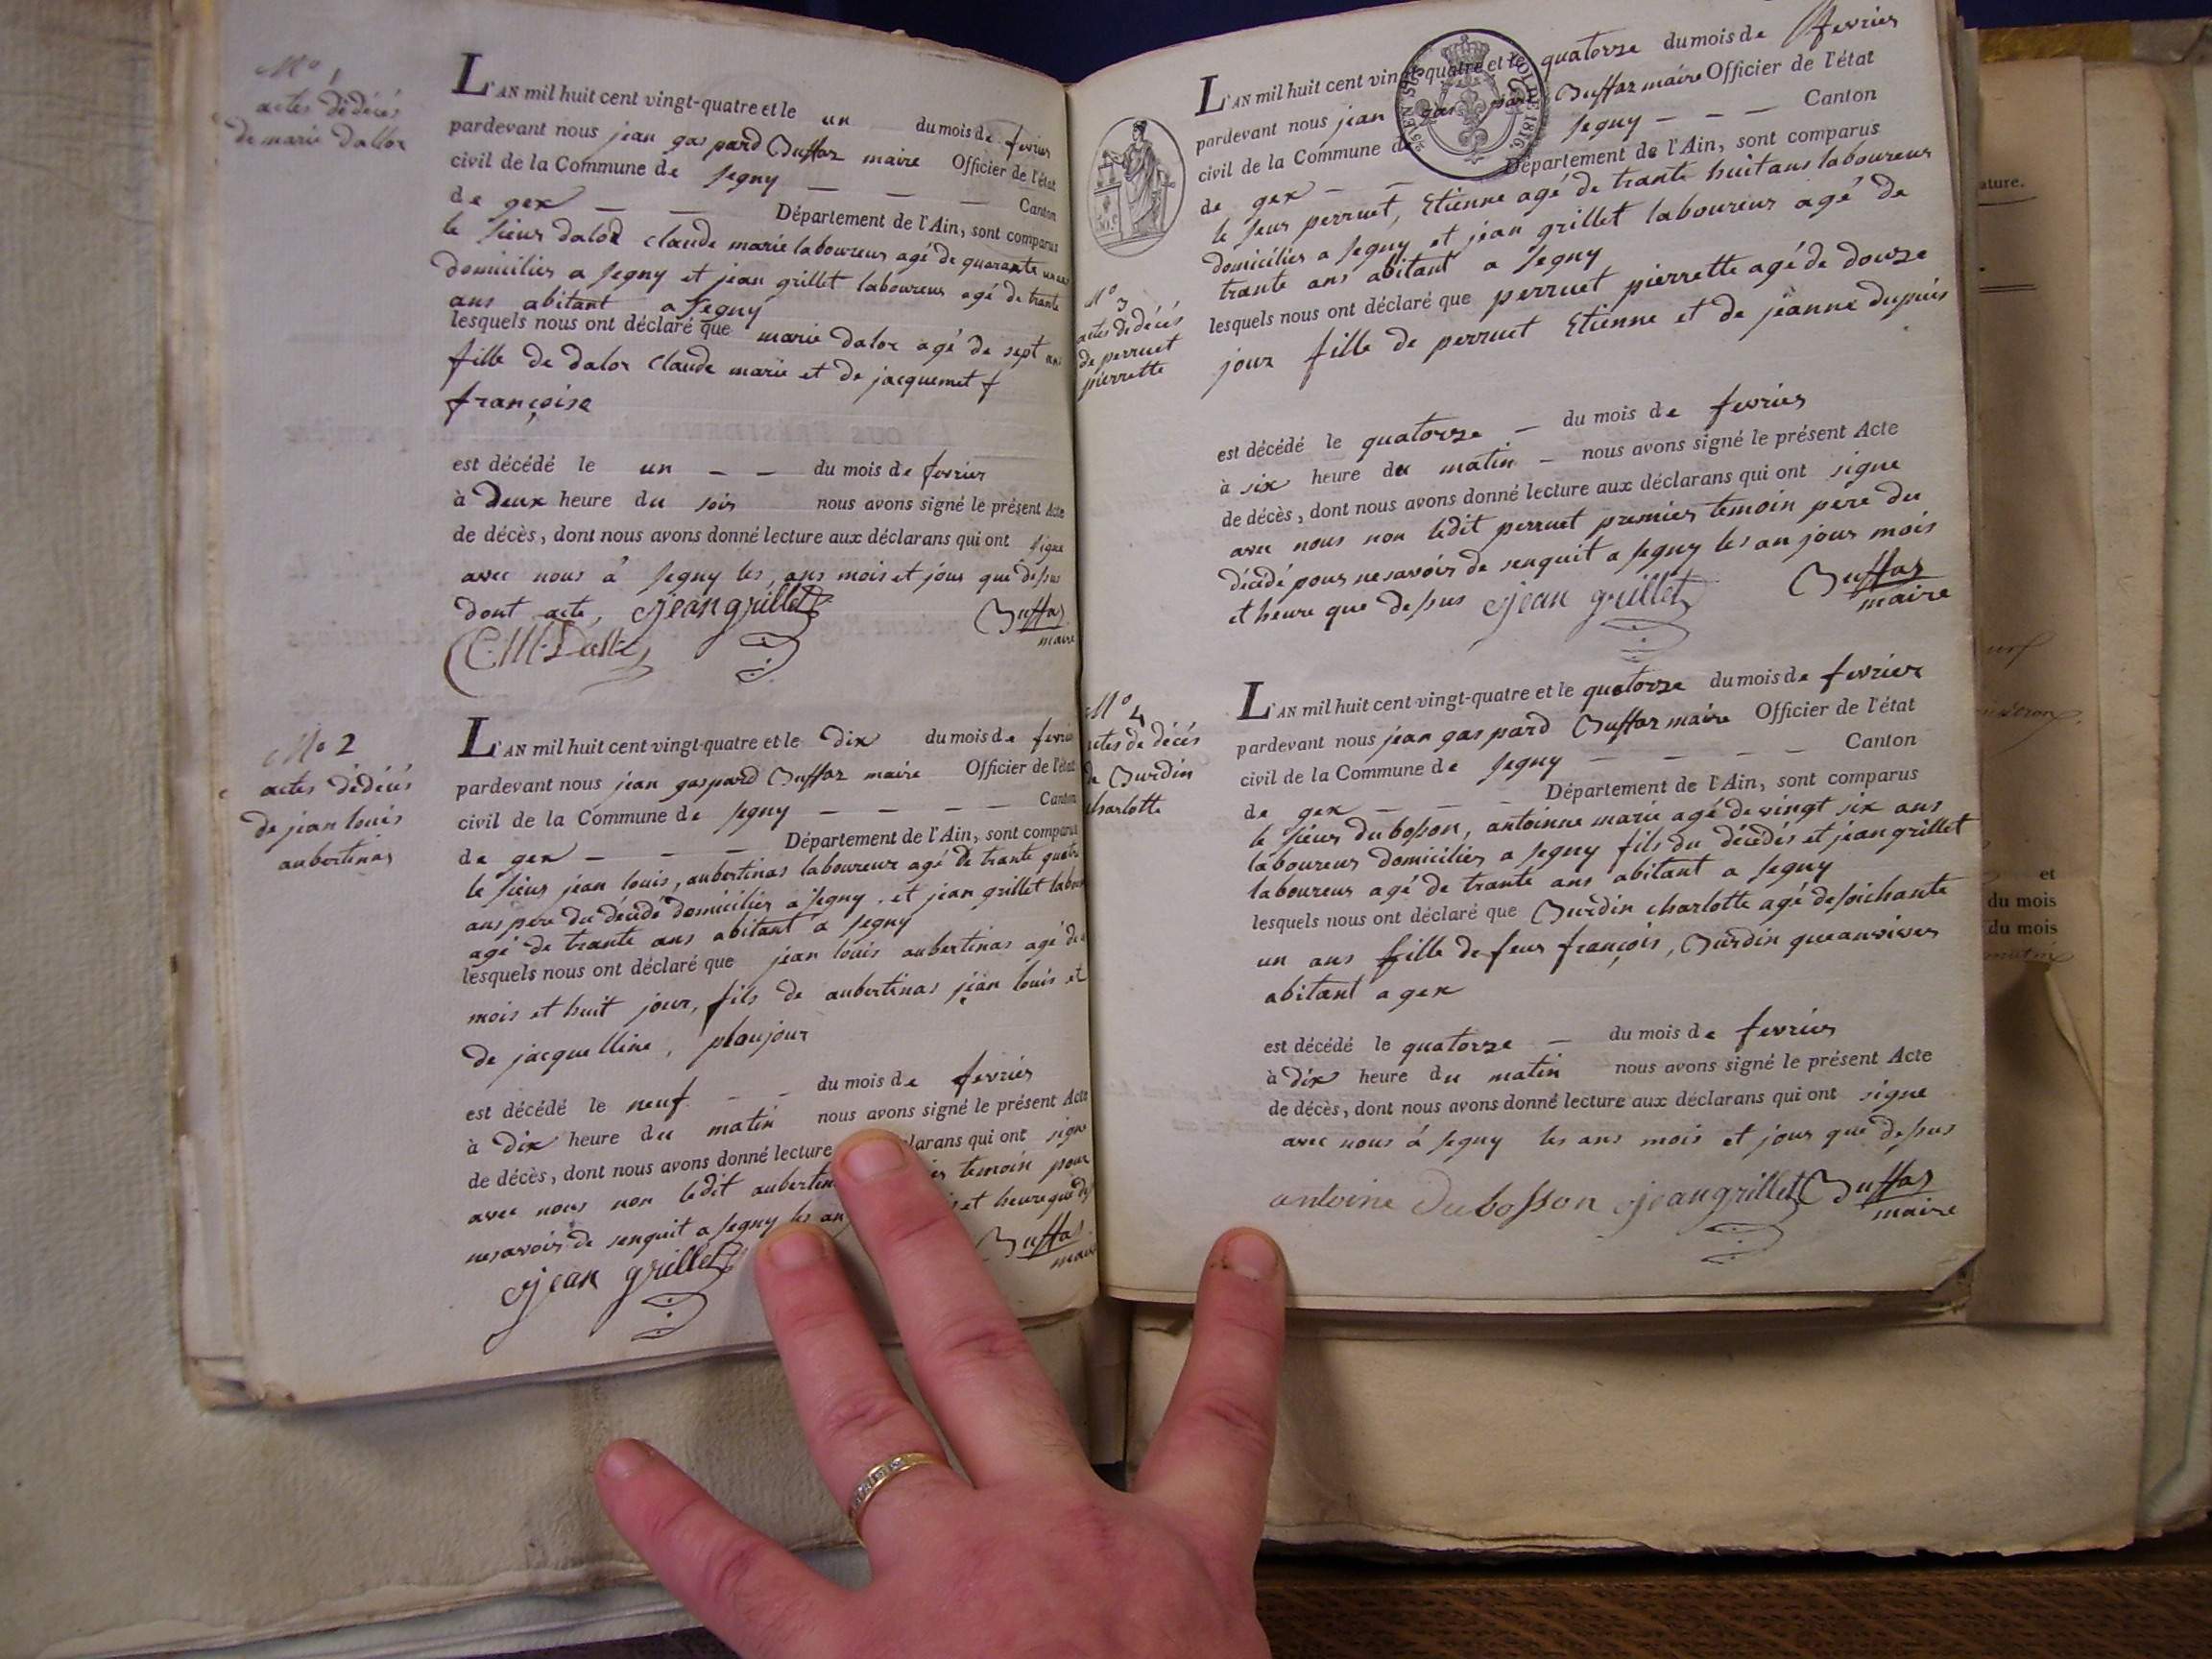 N° 1
actes dédécés
de marie dalloz
L'AN mil huit cent vingt-quatre et le un du mois de fevrier
pardevant nous jean gaspard Buffaz maire Officier de l'état
civil de la Commune de segny — — — Canton
de gex — — Département de l'Ain, sont comparus
le sieur daloz claude marie laboureur agé de quarante
domicilier a segny et jean grillet laboureur agé de trante
ans abitant a segny
lesquels nous ont déclaré que marie daloz agé de sept ans
fille de daloz claude marie et de jacquemet f
françoise
est décédé le un — — du mois de fevrier
à deux heure du soir nous avons signé le présent Acte
de décès, dont nous avons donné lecture aux déclarans qui ont signe
avec nous a segny les, ans mois et jour que dessus
dont acte, jean grillet Buffaz
maire
N° 2
actes dédécés
de jean louis
aubertinaz
L'AN mil huit cent vingt-quatre et le dix du mois de fevrier
pardevant nous jean gaspard Buffaz maire Officier de l'état
civil de la Commune de segny — — — — Canton
de gex — — — Département de l'Ain, sont comparus
le sieur jean louis, aubertinas laboureur agé de trante quatre
ans pere du décidé domicilier a segny, et jean grillet
agé de trante ans abitant a segny
lesquels nous ont déclaré que jean louis aubertinas agé de
mois et huit jour, fils de aubertinas jean louis et
de jacquelline, ploujour
est décédé le neuf — — du mois de fevrier
à dix heure du matin nous avons signé le présent Acte
de décès, dont nous avons donné lecture qui ont signe
avec nous non ledit temoin pour
ne savoir de senquit a segny les et heure que
jean grillet Buffaz
maire
N° 3
actes dedécés
de perruet
pierrette
50.c
L'AN mil huit cent vingt-quatre et le quatorze du mois de fevrier
pardevant nous jean gas pard Buffaz maire Officier de l'état
civil de la Commune de segny — — — Canton
de gex — — Département de l'Ain, sont comparus
le seur perruet, Etienne agé de trante huit ans laboureur
domicilier a segny et jean grillet laboureur agé de
trante ans abitant a segny
lesquels nous ont déclaré que perruet pierrette agé de douze
jour fille de perruet Etienne et de jeanne dupuis
est décédé le quatorze — du mois de fevrier
à six heure du matin — nous avons signé le présent Acte
de décès, dont nous avons donné lecture aux déclarans qui ont signe
avec nous non ledit perruet premier temoin pere du
décidé pour ne savoir de senquit a segny les an jour mois
et heure que dessus jean grillet Buffaz
maire
N° 4
actes de décés
de Burdin
charlotte
L'AN mil huit cent vingt-quatre et le quatorze du mois de fevrier
pardevant nous jean gas pard Buffaz maire Officier de l'état
civil de la Commune de segny — — — Canton
de gex — — — Département de l'Ain, sont comparus
le sieur dubosson, antoinne marie agé de vingt six ans
laboureur domicilier a segny fils du décédés et jean grillet
laboureur agé de trante ans abitant a segny
lesquels nous ont déclaré que Burdin charlotte agé de soichante
un ans fille de feur françois, Burdin
abitant a gex
est décédé le quatorze — du mois de fevrier
à dix heure du matin nous avons signé le présent Acte
de décès, dont nous avons donné lecture aux déclarans qui ont signe
avec nous á segny les ans mois et jour que dessus
antoine Dubosson jean grillet Buffaz
maire
ature.
et
du mois
du mois